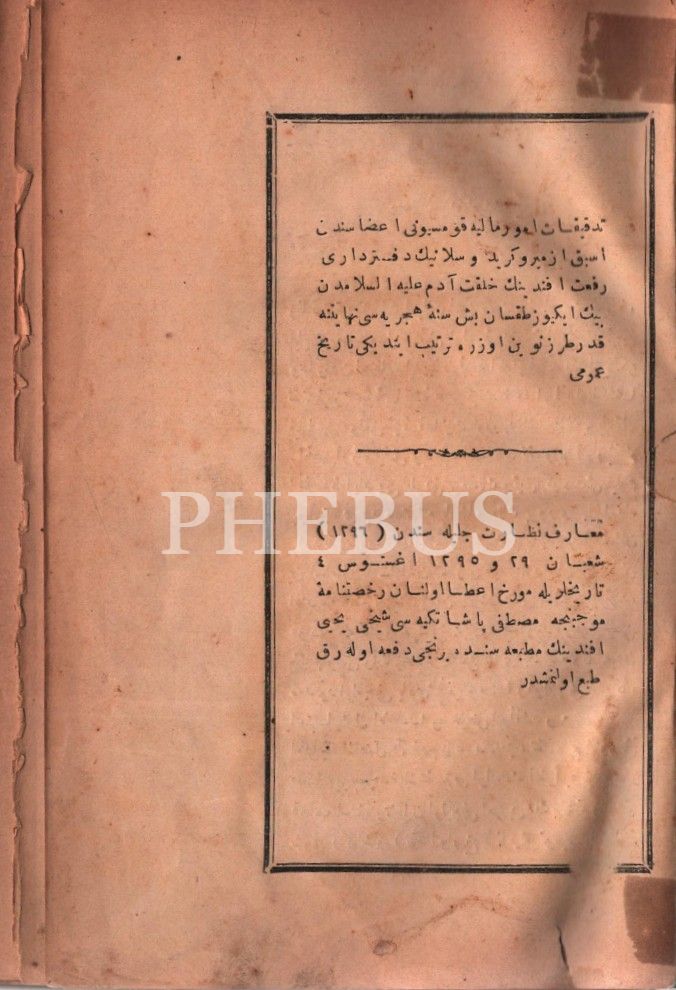 تدقيقات امور ماليه قومسيونى اعضاسندن
اسبق ازمير وكريد وسلانيك دفتردارى
رفعت افندينك خلقت آدم عليه السلامدن
بيك ايكيوز طقسان بش سنۀ هجريه سى نهايتنه
قدر طرز نوين اوزره ترتيب ايتديكى تاريخ
عمومى
PHEBUS
معارف نظارت جليله سندن (١٢٩٦)
شعبان ٢٩ و ١٢٩٥ اغستوس ٤
تاريخلريله مورخ اعطا اولنان رخصتنامۀ
موجبنجه مصطفى پاشا تكيه سى شيخى يحيى
افندينك مطبعه سنده برنجى دفعه اوله رق
طبع اولنمشدر